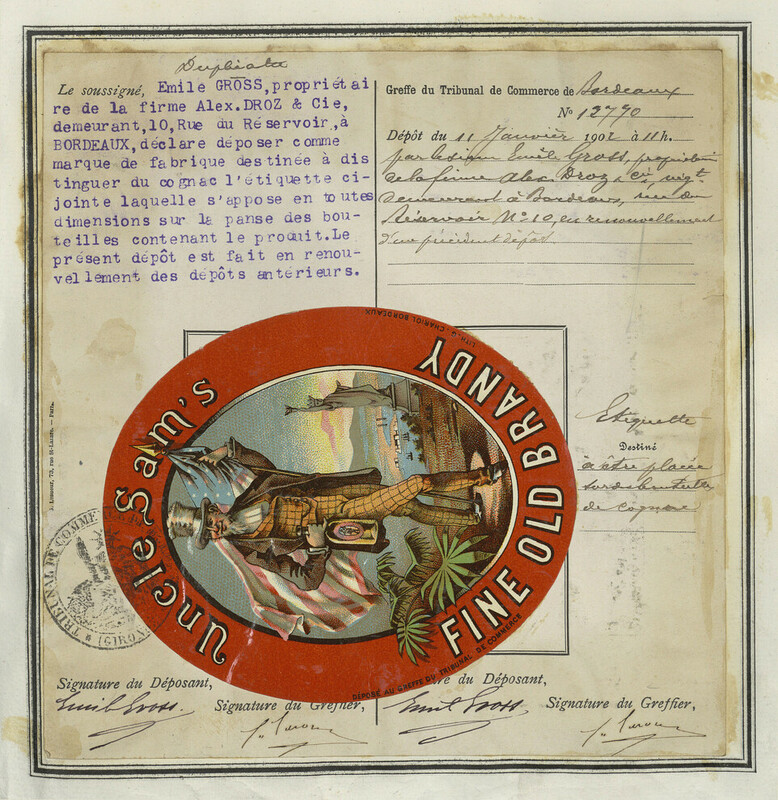 Duplicata
Le soussigné, Emile GROSS, propriétai
re de la firme Alex.DROZ & Cie,
demeurant,10,Rue du Réservoir,à
BORDEAUX,déclare déposer comme
marque de fabrique destinée à dis
tinguer du cognac l'étiquette ci-
jointe laquelle s'appose en toutes
dimensions sur la panse des bou-
teilles contenant le produit.Le
présent dépôt est fait en renou-
vellement des dépôts antérieurs.
Greffe du Tribunal de Commerce de Bordeaux
No 12770
Dépôt du 11 Janvier 1902 à 11h.
par le sieur Emile Gross, propriétaire
de la firme Alex. Droz & Cie,
demeurant à Bordeaux, rue du
Réservoir No 10, en renouvellement
d'un précédent dépôt
LITH. G. CHARIOL BORDEAUX
Uncle Sam's
FINE OLD BRANDY
DÉPOSÉ AU GREFFE DU TRIBUNAL DE COMMERCE
Etiquette
Destiné
à être placée
sur des bouteilles
de cognac
TRIBUNAL DE COMMERCE
(GIRON
Signature du Déposant,
Emil Gross
Signature du Greffier,
re du Déposant,
Emil Gross
Signature du Greffier,